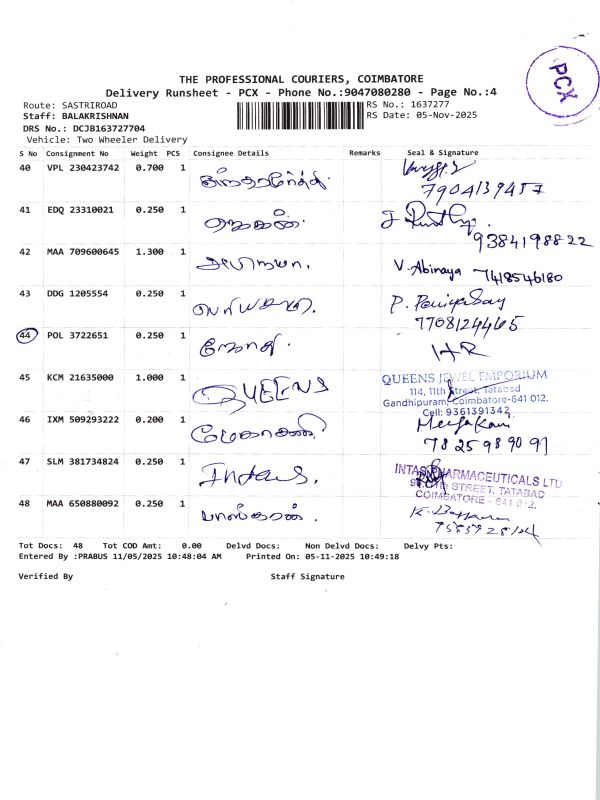 PCX
THE PROFESSIONAL COURIERS, COIMBATORE
Delivery Runsheet - PCX - Phone No.:9047080280 - Page No.:4
Route: SASTRIROAD
RS No.: 1637277
Staff: BALAKRISHNAN
RS Date: 05-Nov-2025
DRS No.: DCJB163727704
Vehicle: Two Wheeler Delivery
S No Consignment No Weight PCS Consignee Details Remarks Seal & Signature
40 VPL 230423742 0.700 1
7904139457
41 EDQ 23310021 0.250 1
9384198822
42 MAA 709600645 1.300 1 அபிநயா. V. Abinaya 7418546180
43 DDG 1205554 0.250 1 P. Periyasay
7708124465
44 POL 3722651 0.250 1 HR
45 KCM 21635000 1.000 1 QUEENS QUEENS JEWEL EMPORIUM
114, 11th Street, Tatabad
Gandhipuram, Coimbatore-641 012.
Cell: 9361391342
46 IXM 509293222 0.200 1
7825989091
47 SLM 381734824 0.250 1 Intas. INTAS PHARMACEUTICALS LTD
STREET, TATABAD
COIMBATORE - 641 012.
48 MAA 650880092 0.250 1 பாஸ்கரன்.
Tot Docs: 48 Tot COD Amt: 0.00 Delvd Docs: Non Delvd Docs: Delvy Pts:
Entered By :PRABUS 11/05/2025 10:48:04 AM Printed On: 05-11-2025 10:49:18
Verified By Staff Signature